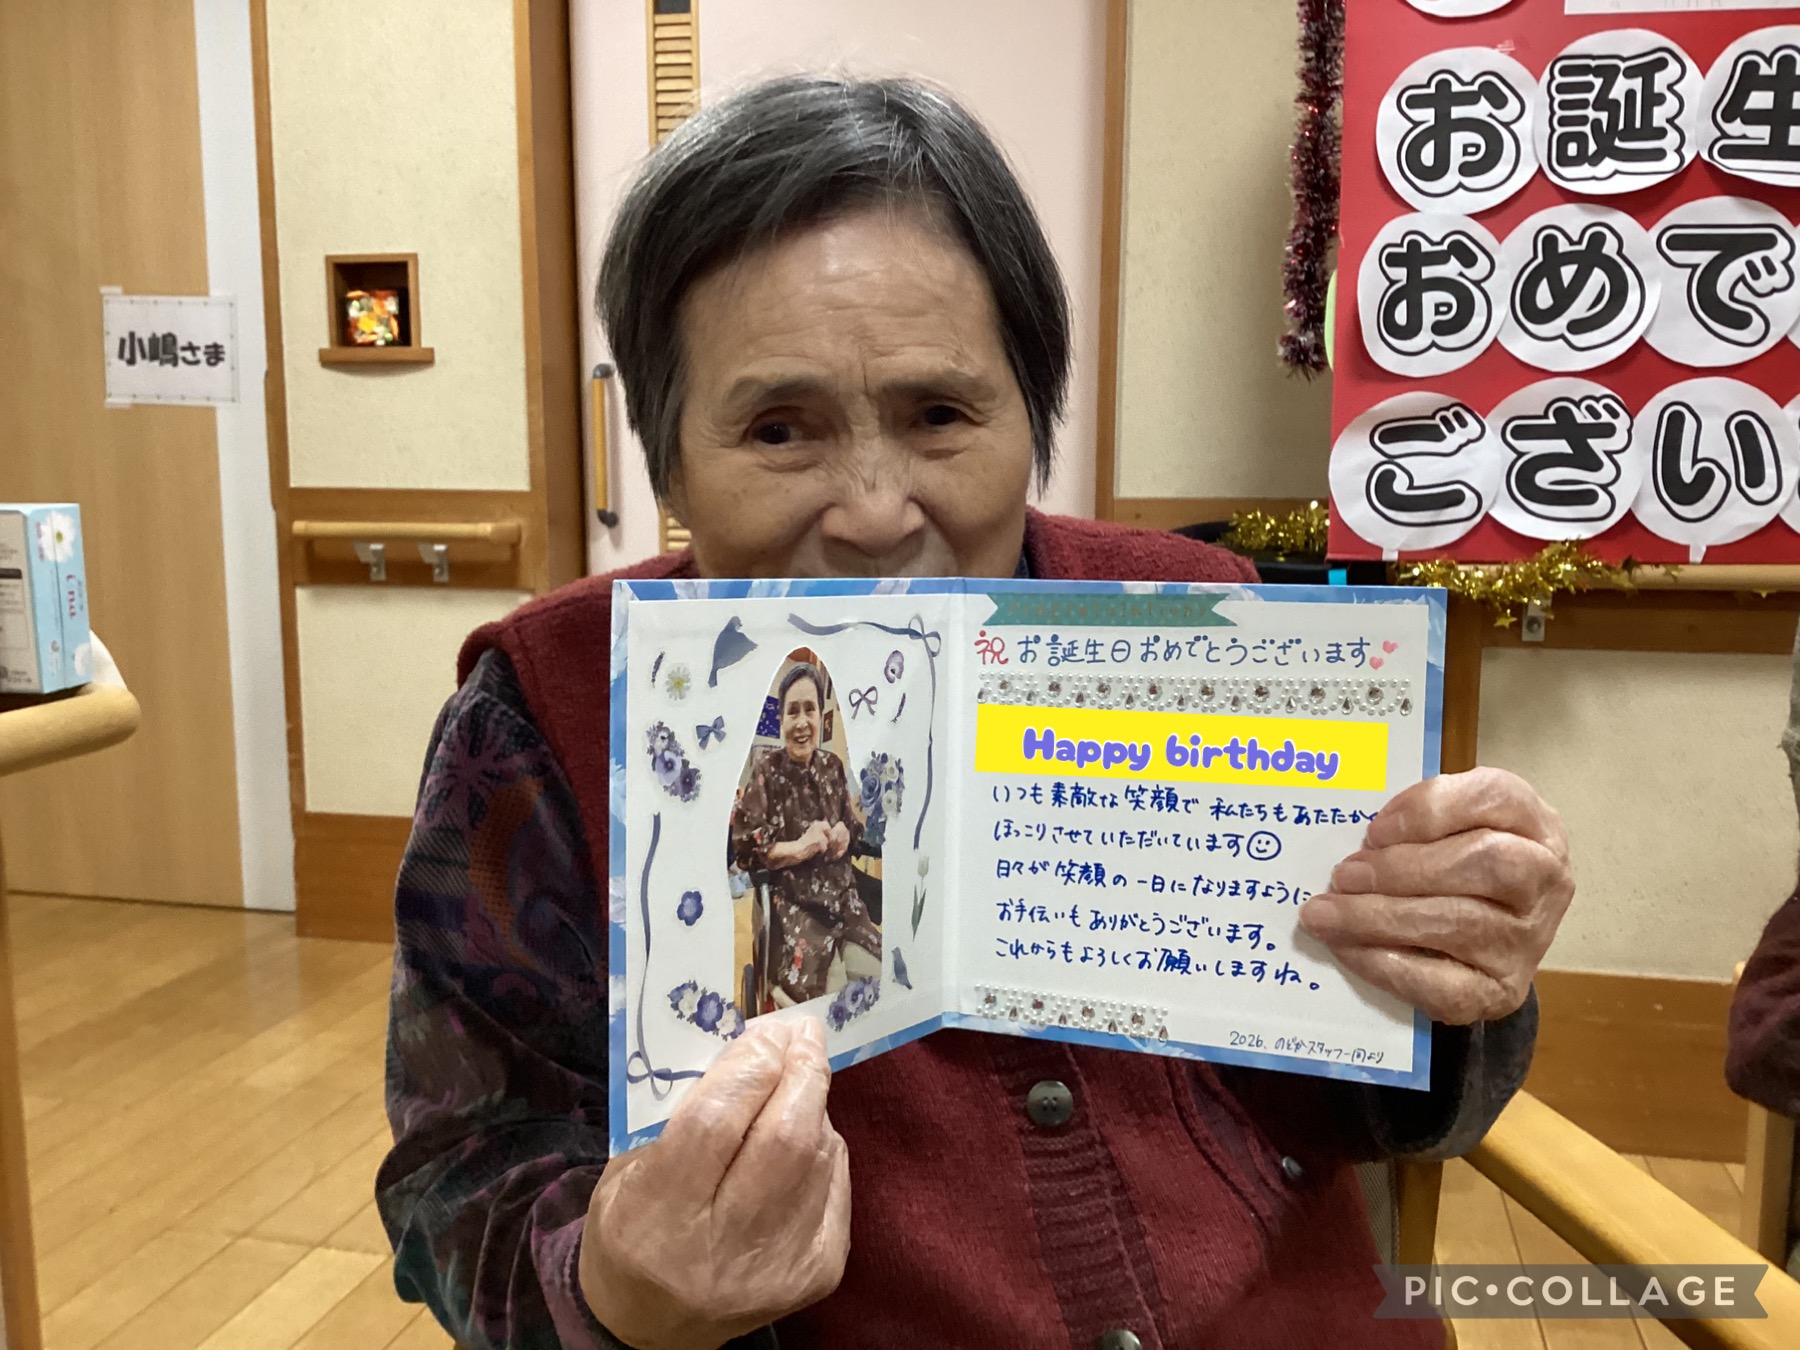 小嶋さま
お誕生
おめで
ござい
祝 お誕生日おめでとうございます
Happy birthday
いつも素敵な笑顔で 私たちもあたたかく
ほっこりさせていただいています
日々が笑顔の一日になりますように
お手伝いもありがとうございます。
これからもよろしくお願いしますね。
2026. のどかスタッフ一同より
PIC•COLLAGE